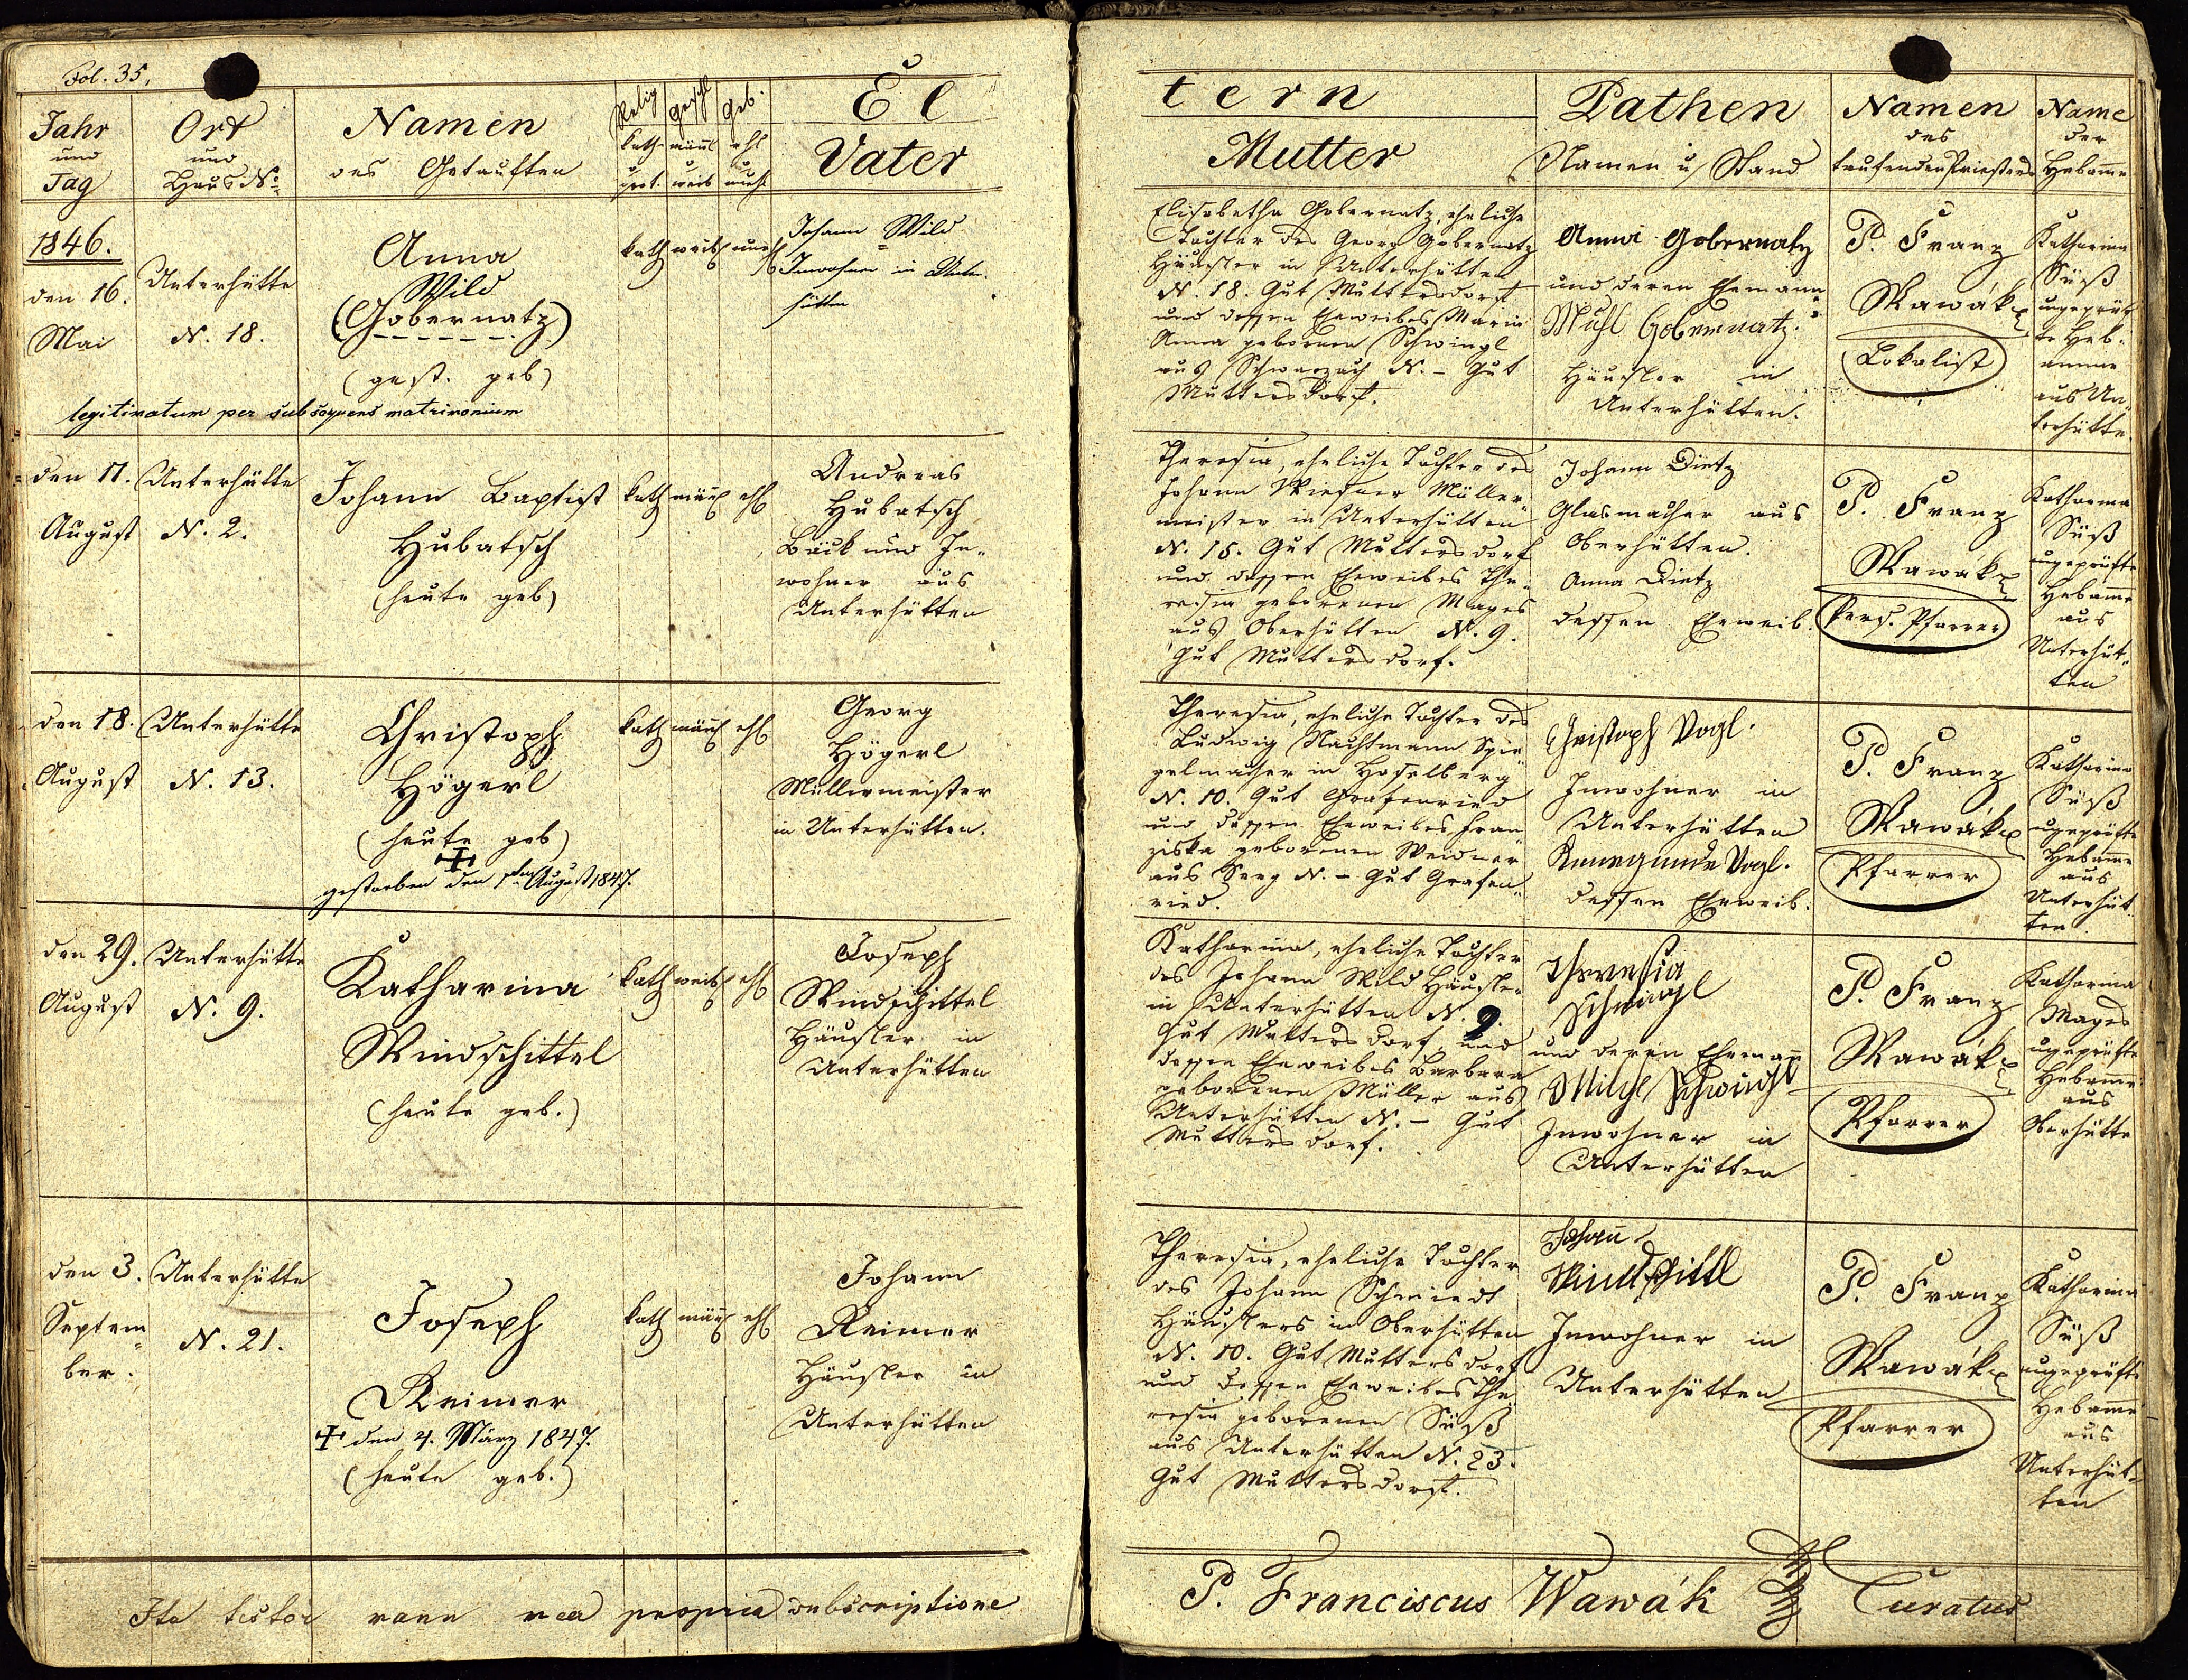 Fol. 35.
Jahr
und
Tag
Ort
und
Haus No
Namen
des Getauften
Relig
kath
u
prot.
Geschl
männl
u
weib
Geb.
ehl
u
uneh
El
Vater
tern
Mutter
Pathen
Namen u Stand
Namen
des
taufenden Priesters
Name
der
Hebamme
1846.
den 16.
Mai
Unterhütte
N. 18.
Anna
Wild
(Gobernatz)
(gest. geb)
legitimatum per subsequens matrimonium
kath
weib
uneh
Johann Wild
Inwohner in Unter-
hütten
Elisabetha Gobernatz, eheliche
Tochter des Georg Gobernatz
Häusler in Unterhütten
N. 18. Gut Muttersdorf
und dessen Eheweibes Maria
Anna gebornen Schwingl
aus Schwarzach N. – Gut
Muttersdorf.
Anna Gobernatz
und deren Ehemann
Michl Gobernatz.
Häusler in
Unterhütten.
P. Franz
Wawák
Lokalist
Katharina
Süß
ungeprüf-
te Heb-
amme
aus Un-
terhütte.
den 17.
August
Unterhütte
N. 2.
Johann Baptist
Hubatsch
(heute geb)
kath
männl
ehl
Andreas
Hubatsch
Bäck und In-
wohner aus
Unterhütten
Theresia, eheliche Tochter des
Johann Wiesner Müller-
meister in Unterhütten
N. 15. Gut Muttersdorf
und dessen Eheweibes The-
resia geborenen Mages
aus Oberhütten N. 9.
Gut Muttersdorf.
Johann Dietz
Glasmacher aus
Oberhütten.
Anna Dietz
dessen Eheweib.
P. Franz
Wawák
Pers. Pfarrer
Katharina
Süß
ungeprüfte
Hebamme
aus
Unterhüt-
ten
den 18.
August
Unterhütte
N. 13.
Christoph
Högerl
(heute geb)
gestorben den 1ten August 1847.
kath
männl
ehl
Georg
Högerl
Müllermeister
in Unterhütten.
Theresia, eheliche Tochter des
Ludwig Nachtmann Spie-
gelmacher in Haselberg
N. 10. Gut Grafenried
und dessen Eheweibes Fran-
ziska geborenen Weidner
aus Seeg N. – Gut Grafen-
ried.
Christoph Vogl.
Inwohner in
Unterhütten
Kunegunde Vogl.
dessen Eheweib.
P. Franz
Wawák
Pfarrer
Katharina
Süß
ungeprüfte
Hebamme
aus
Unterhüt-
ten.
den 29.
August
Unterhütte
N. 9.
Katharina
Windschittel
(heute geb.)
kath
weibl
ehl
Joseph
Windschittel
Häusler in
Unterhütten
Katharina, eheliche Tochter
des Johann Wild Häusler
in Unterhütten N. 9.
Gut Muttersdorf, und
dessen Eheweibes Barbara
geborenen Müller aus
Unterhütten N. – Gut
Muttersdorf.
Theresia
Schwingl
und deren Ehemann
Milchl Schwingl
Inwohner in
Unterhütten
P. Franz
Wawák
Pfarrer
Katharina
Mages
ungeprüfte
Hebamme
aus
Oberhütte
den 3.
Septem-
ber.
Unterhütte
N. 21.
Joseph
Reimer
den 4. März 1847.
(heute geb.)
kath
männl
ehl
Johann
Reimer
Häusler in
Unterhütten
Theresia, eheliche Tochter
des Johann Schmiedt
Häuslers in Oberhütten
N. 10. Gut Muttersdorf
und dessen Eheweibes The-
resia geborenen Süß
aus Unterhütten N. 23.
Gut Muttersdorf.
Johan
Windschittl
Inwohner in
Unterhütten
P. Franz
Wawák
Pfarrer
Katharina
Süß
ungeprüfte
Hebamme
aus
Unterhüt-
ten
Ita testor manu mea propria subscriptione
P. Franciscus Wawák
Curatus